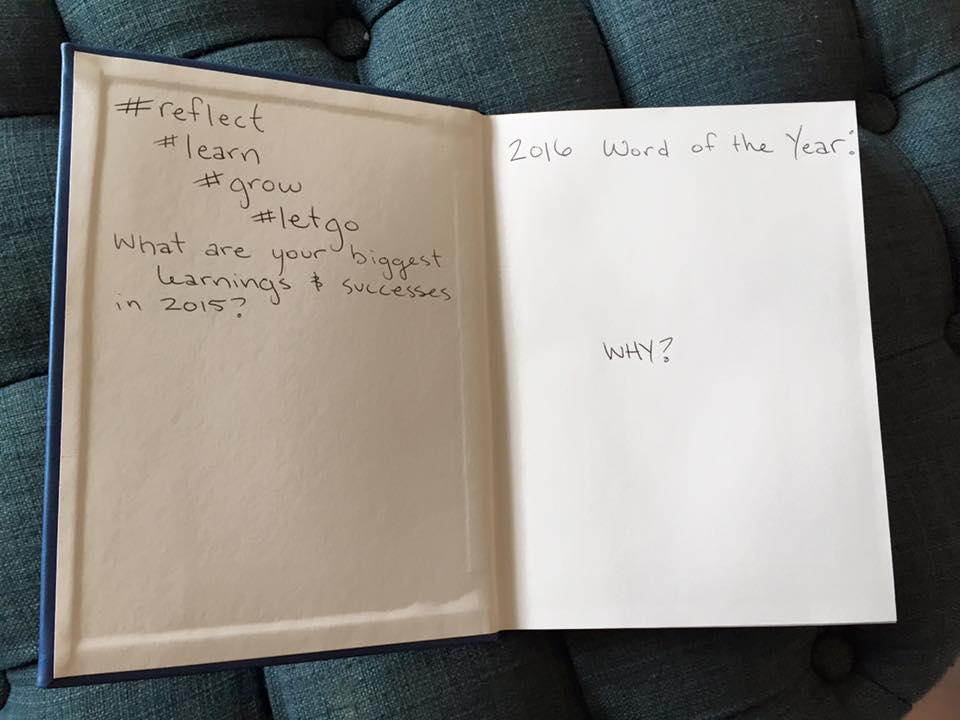 #reflect
#learn
#grow
#letgo
What are your biggest
learnings & successes
in 2015?
2016 Word of the Year:
WHY?